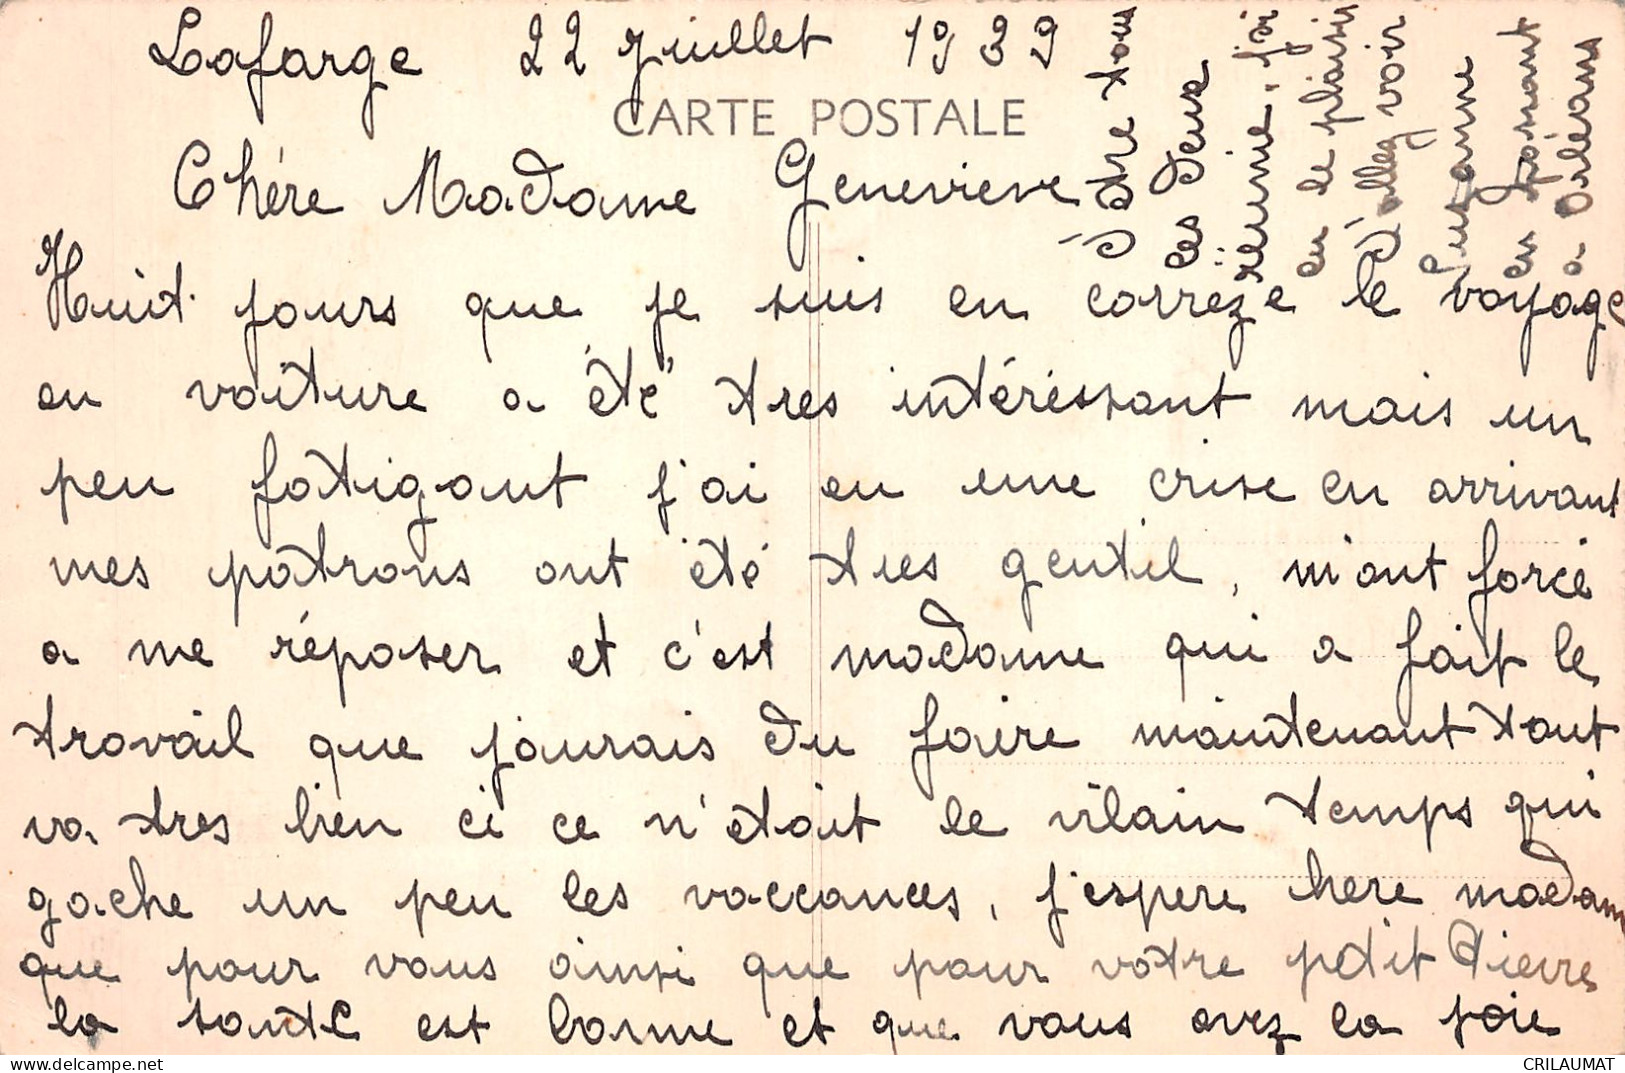 Lafarge 22 Juillet 1939
CARTE POSTALE
Chére Madame Genevieve
Huit jours que je suis en correze le voyage
en voiture a été tres intéréssant mais un
peu fatigant j'ai eu une crise en arrivant
mes patrons ont été tres gentil, m'ont forcé
a me réposer et c'est madame qui a fait le
travail que j'aurais du faire maintenant tout
va tres bien ci ce n'etait le vilain temps qui
gache un peu les vaccances, j'espere here madam
que pour vous ainsi que pour votre petit Pierre
la santé est bonne et que vous avez la joie
d'être tous
les Deux
reunie, j'ai
eu le plaisir
d'allez voir
Suzanne
en passant
a Orléans
CRILAUMAT